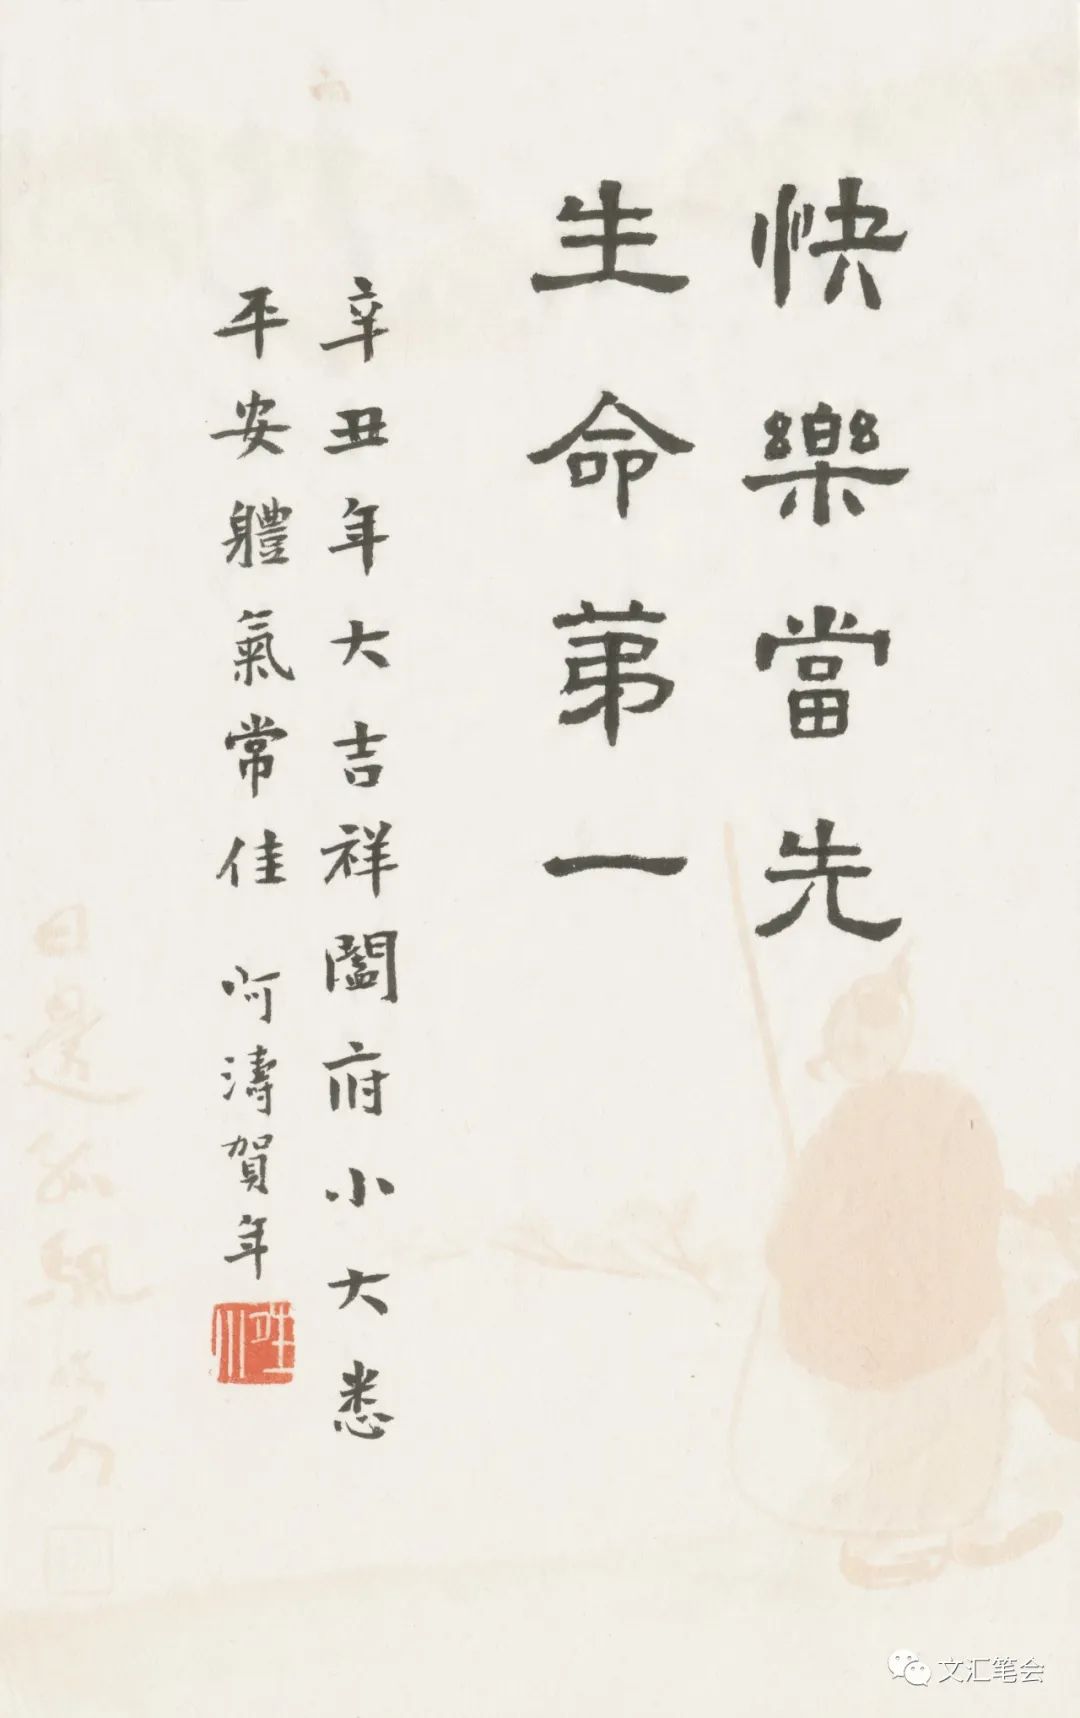 快樂當先
生命第一
辛丑年大吉祥闔府小大悉
平安體氣常佳 呵濤賀年
文汇笔会